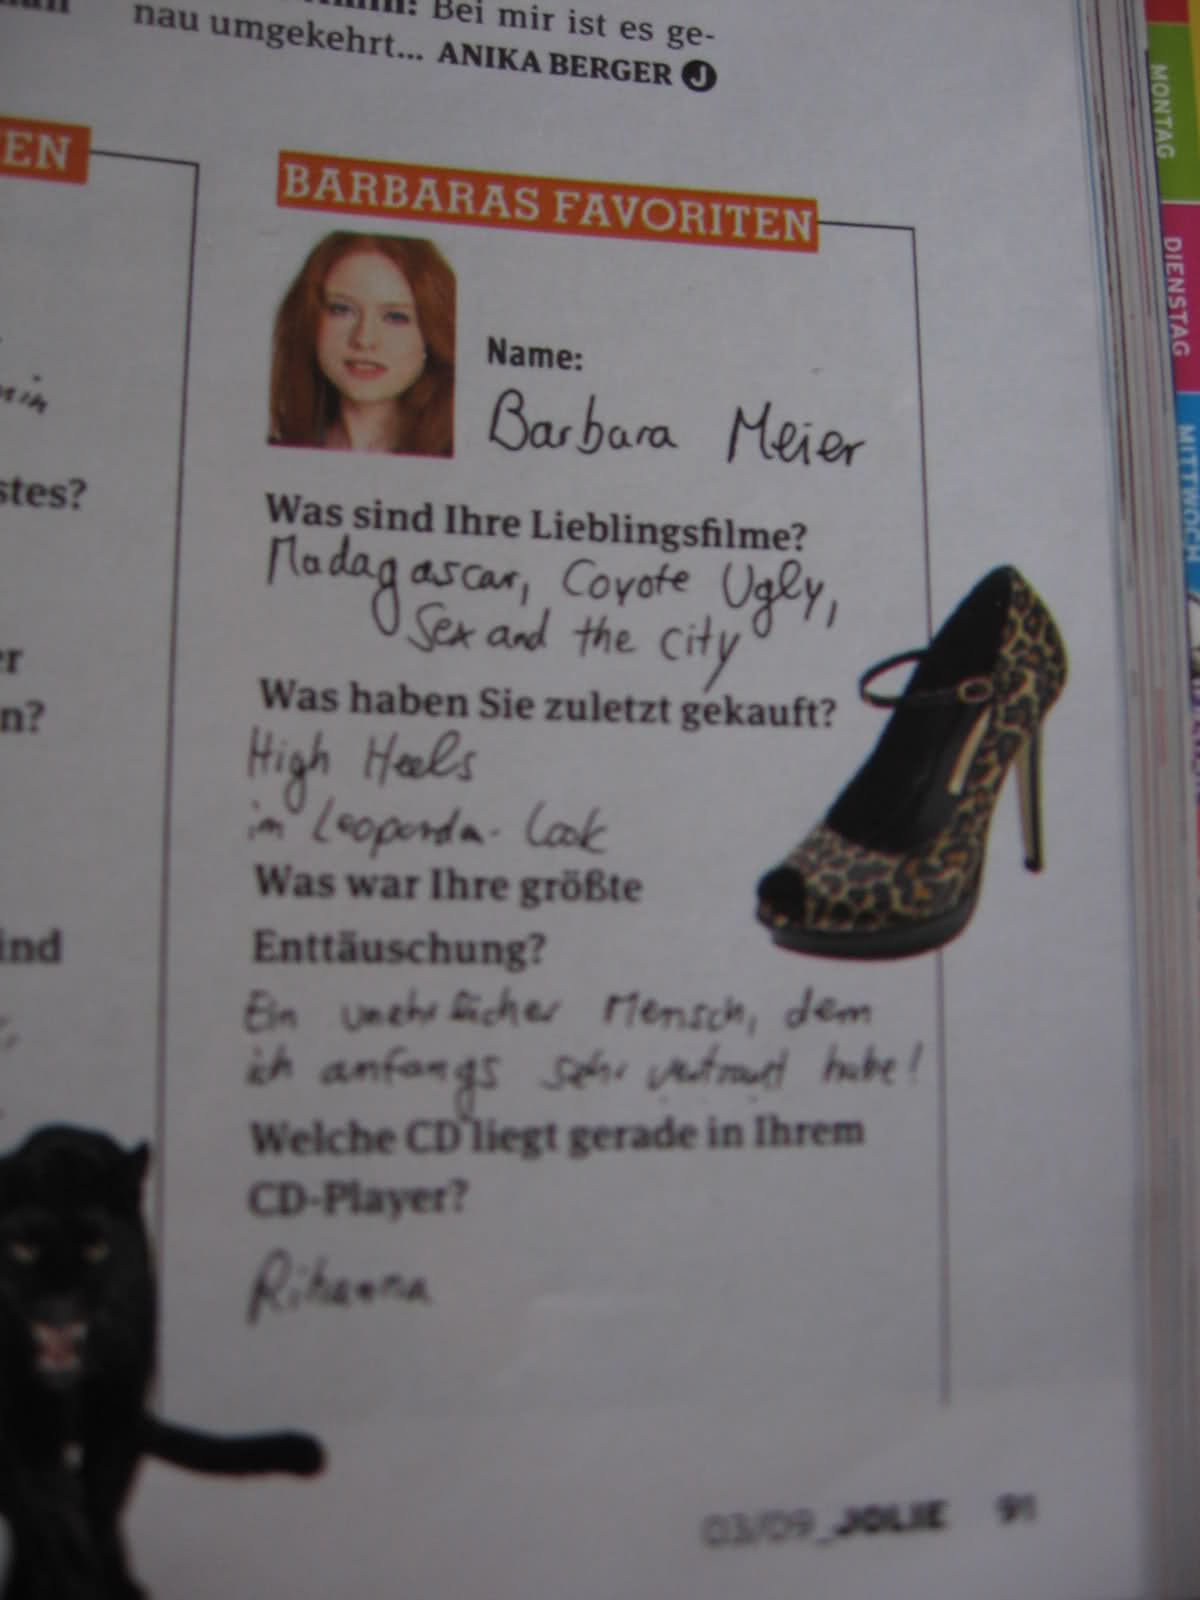 Bei mir ist es ge-
nau umgekehrt... ANIKA BERGER J
EN
BARBARAS FAVORITEN
Name:
Barbara Meier
Was sind Ihre Lieblingsfilme?
Madagascar, Coyote Ugly,
Sex and the city
Was haben Sie zuletzt gekauft?
High Heels
im Leoparden-Look
Was war Ihre größte
Enttäuschung?
Ein unehrlicher Mensch, dem
ich anfangs sehr vertraut habe!
Welche CD liegt gerade in Ihrem
CD-Player?
Rihanna
03/09_JOLIE 91
stes?
er
n?
ind
MONTAG
DIENSTAG
MITTWOCH